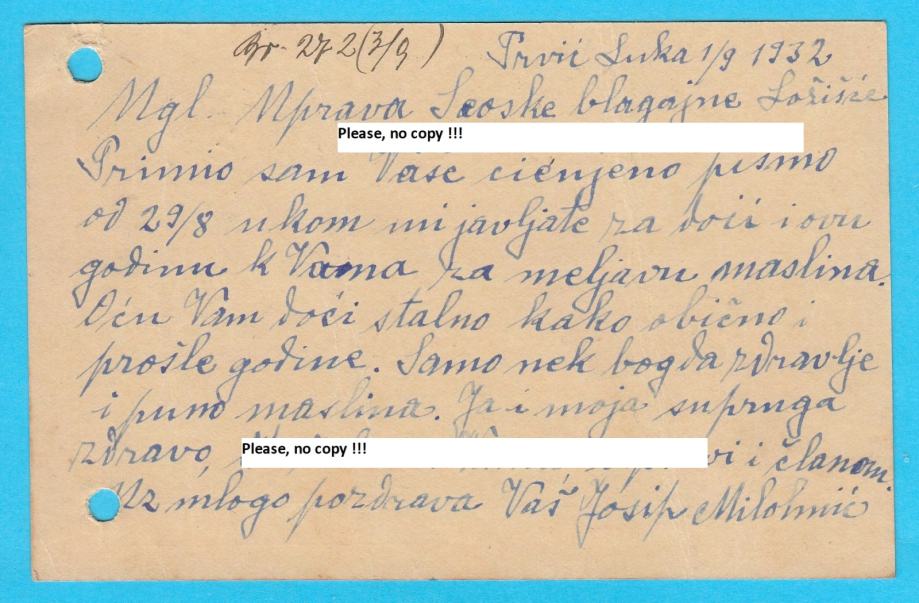 Br. 272 (3/9)
Prvić Luka 1/9 1932
Ugl. Uprava Seoske blagajne Ložišće
Please, no copy !!!
Primio sam Vaše cićenjeno pismo
od 29/8 u kom mi javljate za doći i ovu
godinu k Vama za meljavu maslina.
Oću Vam doći stalno kako obično i
prošle godine. Samo nek bog da zdravlje
i puno maslina. Ja i moja supruga
zdravo,
Please, no copy !!!
i članom.
Uz mlogo pozdrava Vaš Josip Milohnić